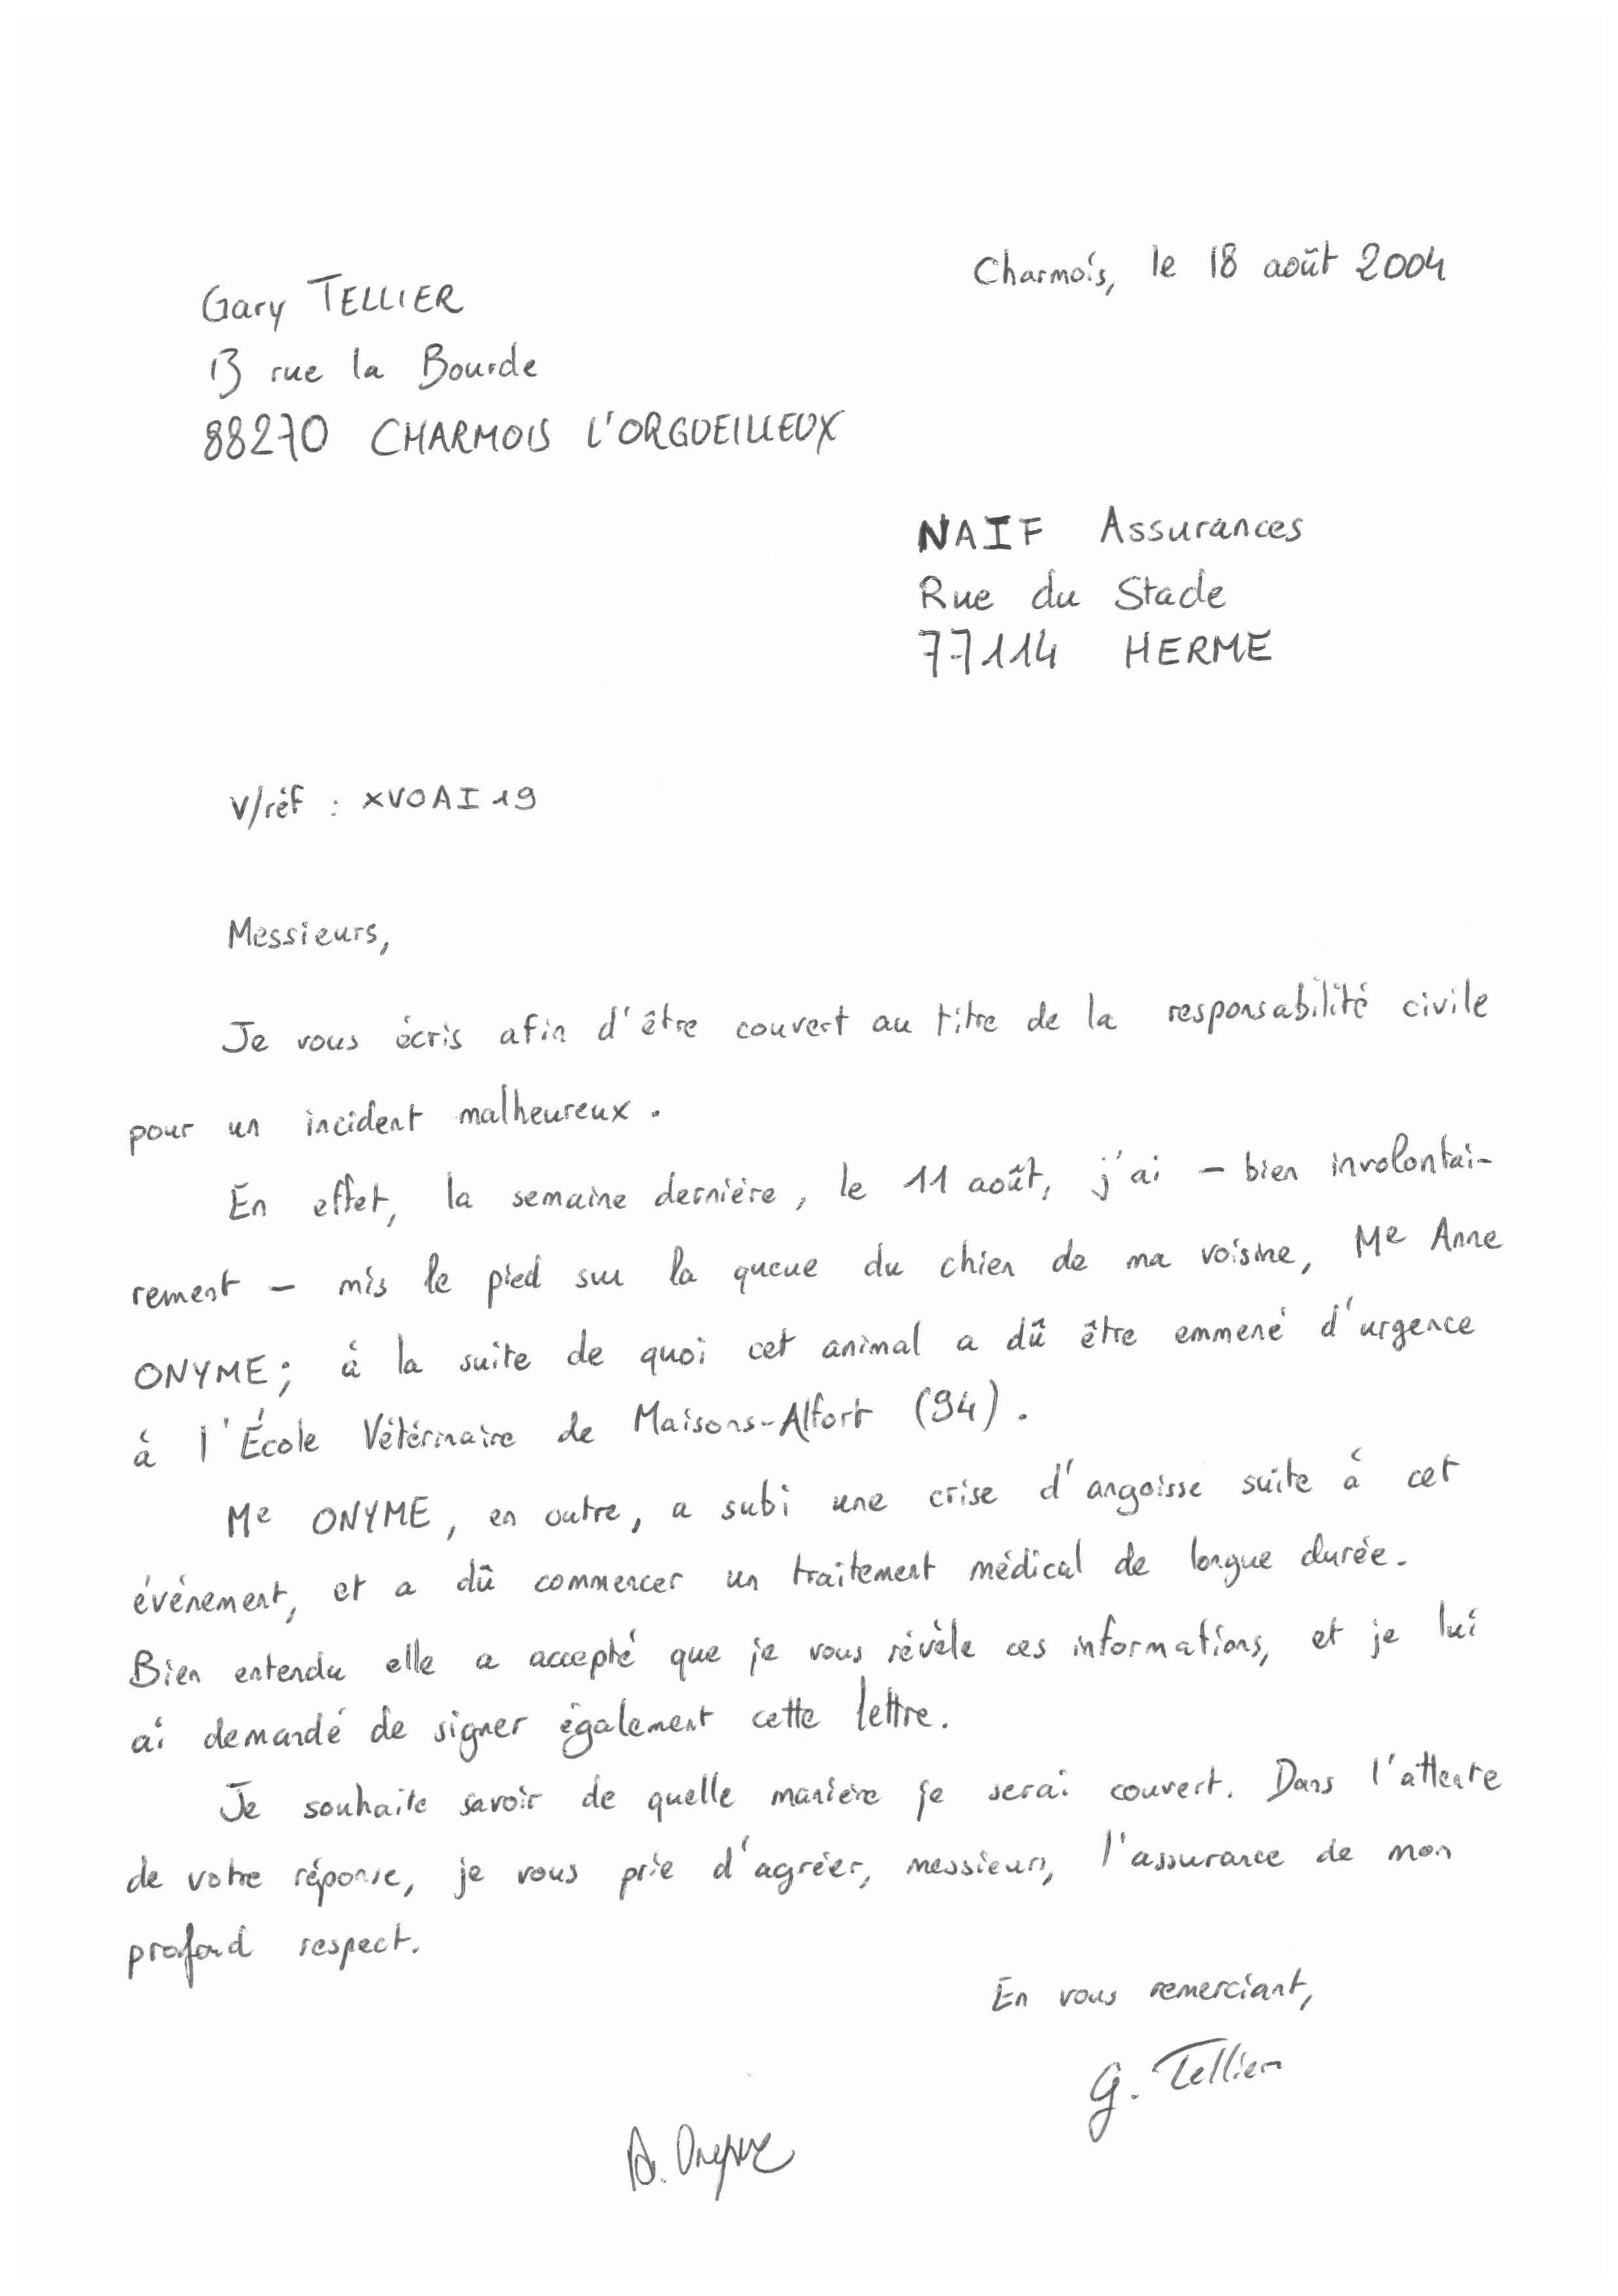 Charmois, le 18 août 2004
Gary TELLIER
13 rue la Bourde
88270 CHARMOIS L'ORGUEILLEUX
NAIF Assurances
Rue du Stade
77114 HERME
V/réf : XVOAI19
Messieurs,
Je vous écris afin d'être couvert au titre de la responsabilité civile
pour un incident malheureux.
En effet, la semaine dernière, le 11 août, j'ai – bien involontai-
rement – mis le pied sur la queue du chien de ma voisine, Me Anne
ONYME ; à la suite de quoi cet animal a dû être emmené d'urgence
à l'École Vétérinaire de Maisons-Alfort (94).
Me ONYME, en outre, a subi une crise d'angoisse suite à cet
événement, et a dû commencer un traitement médical de longue durée.
Bien entendu elle a accepté que je vous révèle ces informations, et je lui
ai demandé de signer également cette lettre.
Je souhaite savoir de quelle manière je serai couvert. Dans l'attente
de votre réponse, je vous prie d'agréer, messieurs, l'assurance de mon
profond respect.
En vous remerciant,
G. Tellier
A. Onyme